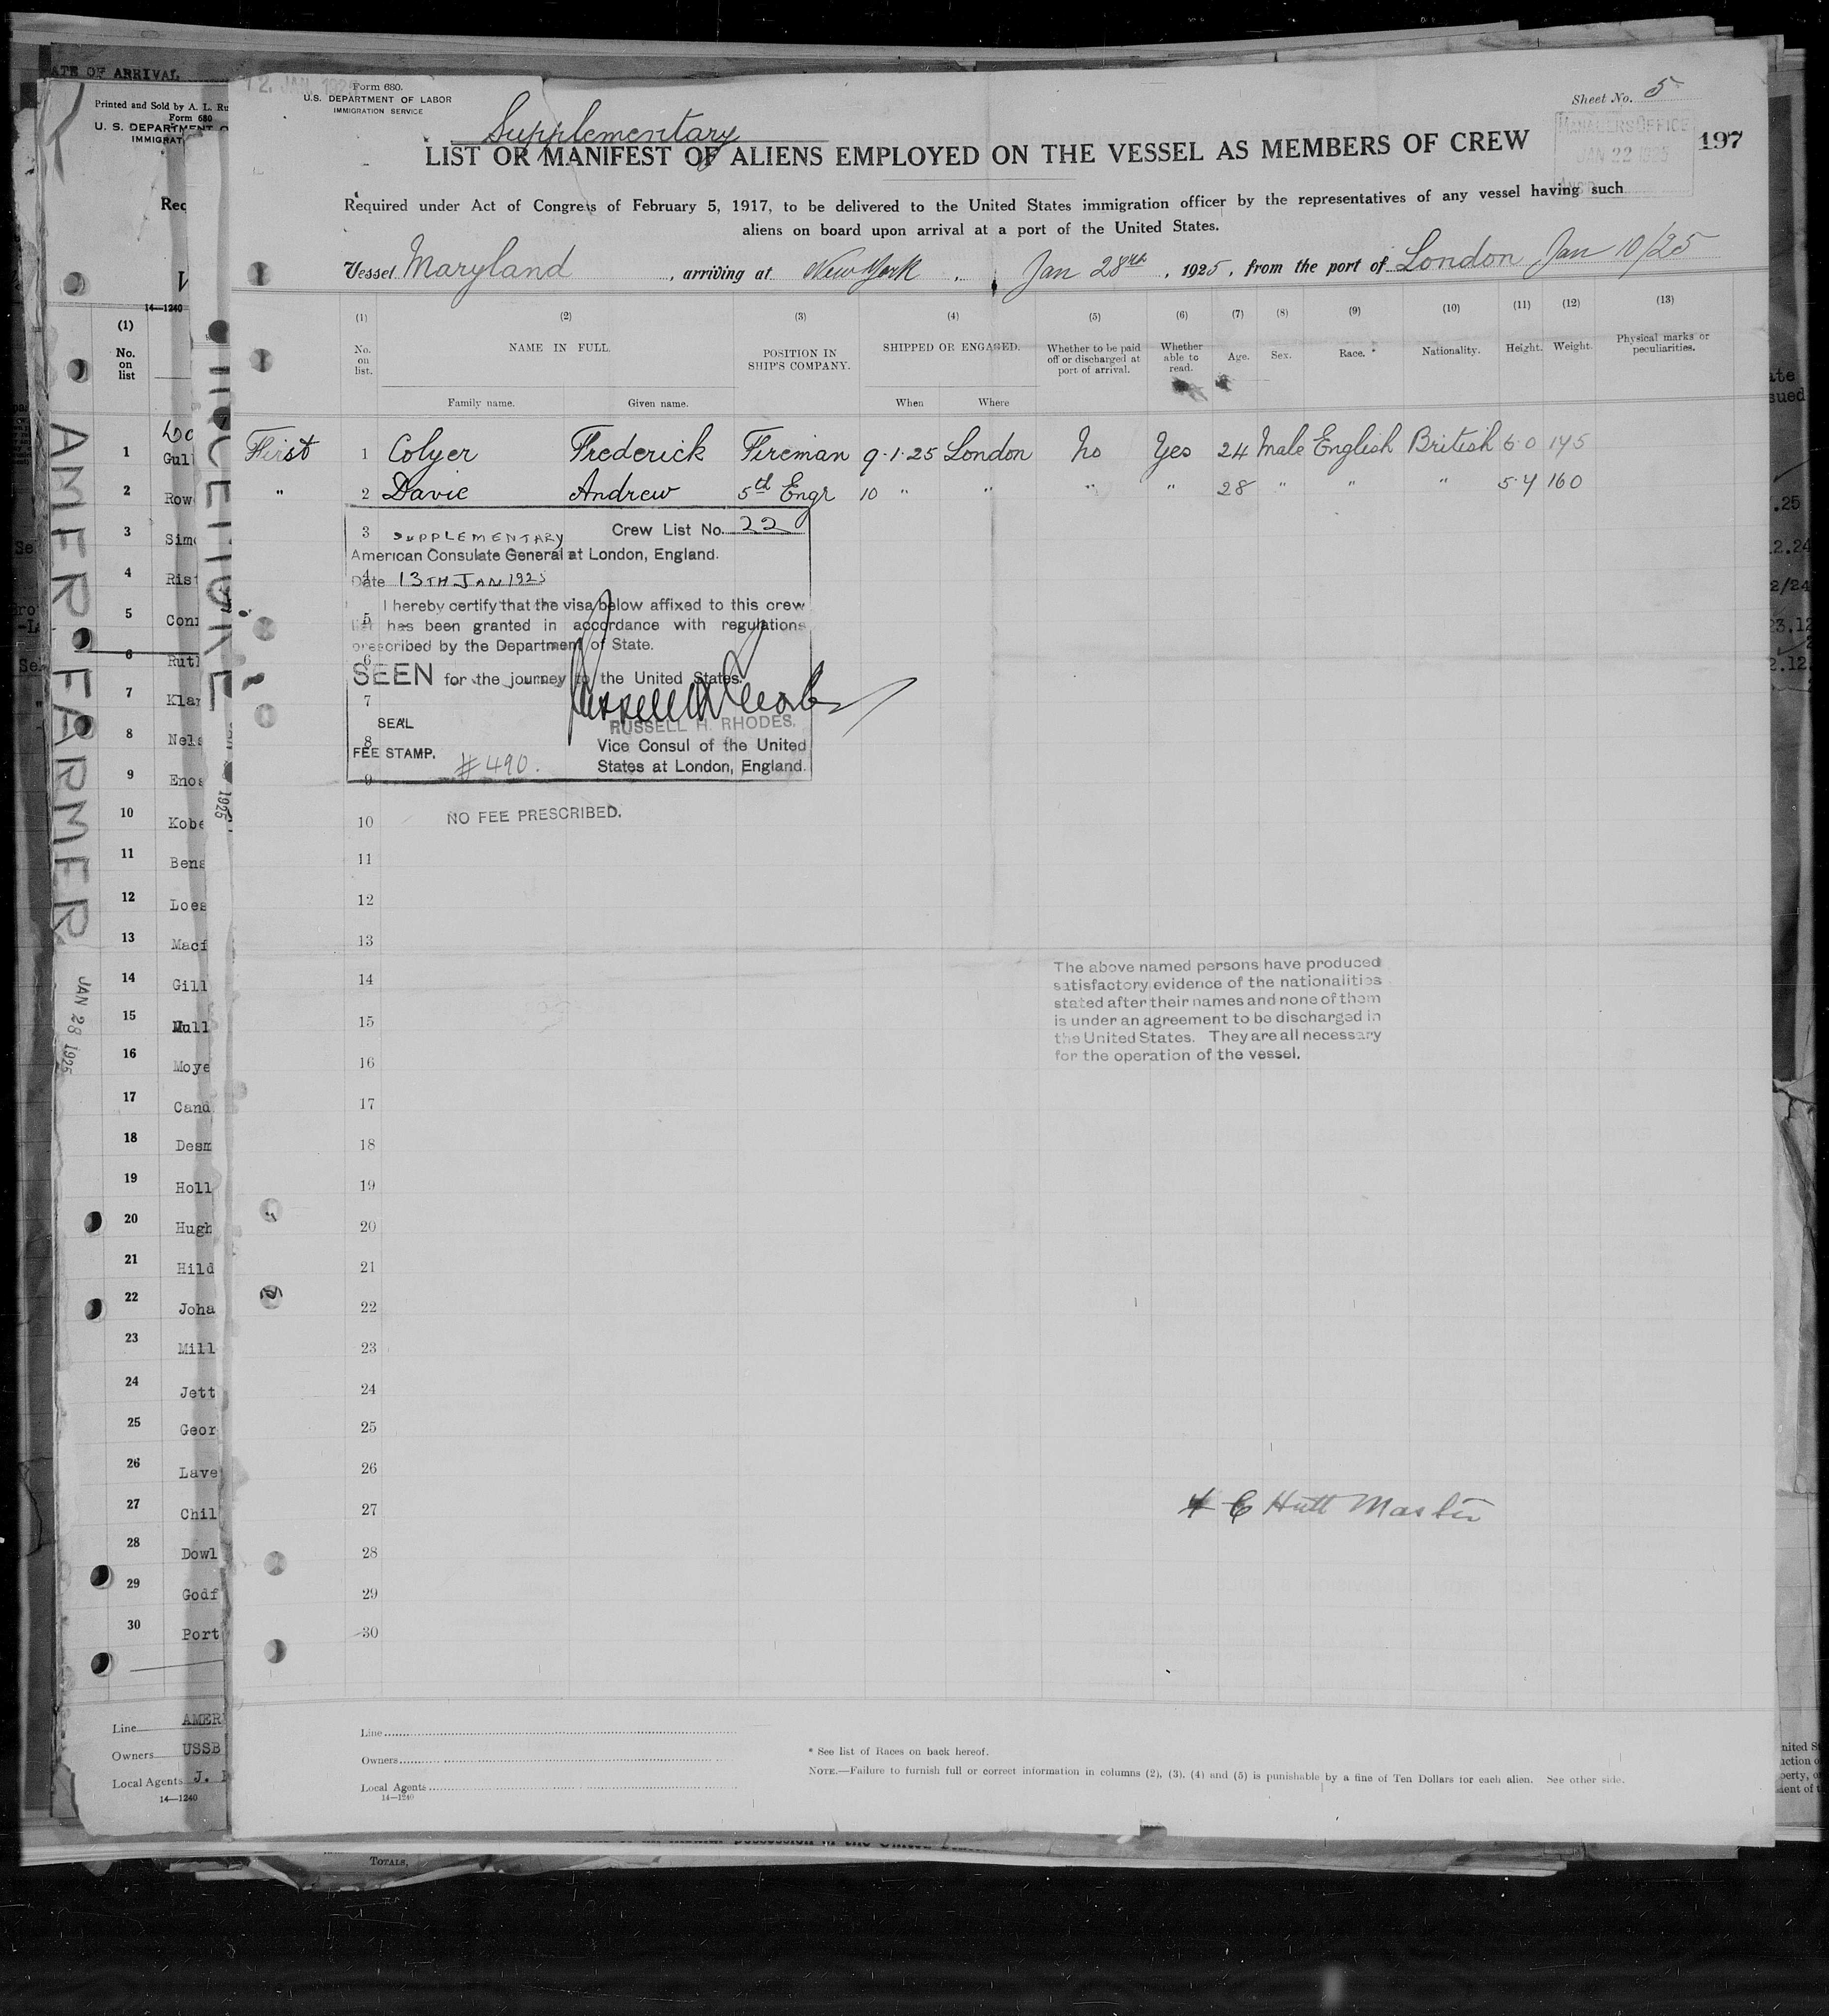 12. JAN. 192
Form 680.
U.S. DEPARTMENT OF LABOR
IMMIGRATION SERVICE
Sheet No. 5
MANAGERS OFFICE
JAN 22 1925
197
Supplementary
LIST OR MANIFEST OF ALIENS EMPLOYED ON THE VESSEL AS MEMBERS OF CREW
Required under Act of Congress of February 5, 1917, to be delivered to the United States immigration officer by the representatives of any vessel having such
aliens on board upon arrival at a port of the United States.
Vessel Maryland, arriving at New York, Jan 28th, 1925, from the port of London Jan 10/25
(1) (2) (3) (4) (5) (6) (7) (8) (9) (10) (11) (12) (13)
No. on list. NAME IN FULL. POSITION IN SHIP'S COMPANY. SHIPPED OR ENGAGED. Whether to be paid off or discharged at port of arrival. Whether able to read. Age. Sex. Race. * Nationality. Height. Weight. Physical marks or peculiarities.
Family name. Given name. When Where
First 1 Colyer Frederick Fireman 9·1·25 London No Yes 24 Male English British 6·0 175
" 2 Davie Andrew 5th Engr 10 " " " " 28 " " " 5·4 160
3 SUPPLEMENTARY Crew List No. 22
American Consulate General at London, England.
4
Date 13TH JAN 1925
I hereby certify that the visa below affixed to this crew
5
list has been granted in accordance with regulations
prescribed by the Department of State.
6
SEEN for the journey to the United States.
7
SEAL
RUSSELL H. RHODES.
8
FEE STAMP. Vice Consul of the United
#490. States at London, England.
9
10 NO FEE PRESCRIBED.
11
12
13
The above named persons have produced
14 satisfactory evidence of the nationalities
stated after their names and none of them
15 is under an agreement to be discharged in
the United States. They are all necessary
16 for the operation of the vessel.
17
18
19
20
21
22
23
24
25
26
27 E Hutt Master
28
29
30
Line
Owners
Local Agents
14—1240
* See list of Races on back hereof.
NOTE.—Failure to furnish full or correct information in columns (2), (3), (4) and (5) is punishable by a fine of Ten Dollars for each alien. See other side.
ATE OF ARRIVAL
Printed and Sold by A. L. Ru
Form 680
U. S. DEPARTMENT O
IMMIGRAT
Req
V
14—1240
(1)
No. on list
1 Gull
2 Row
3 Sim
4 Rist
5 Conn
6 Ruth
7 Klar
8 Nels
9 Enos
10 Kobe
11 Bens
12 Loes
13 Macf
14 Gill
15 Mull
16 Moye
17 Cand
18 Desm
19 Holl
20 Hugh
21 Hild
22 Joha
23 Mill
24 Jett
25 Geor
26 Lave
27 Chil
28 Dowl
29 Godf
30 Port
Line AMER
Owners USSB
Local Agents J.
14—1240
AMER·FARMER
JAN 28 1925
1925
TOTALS,